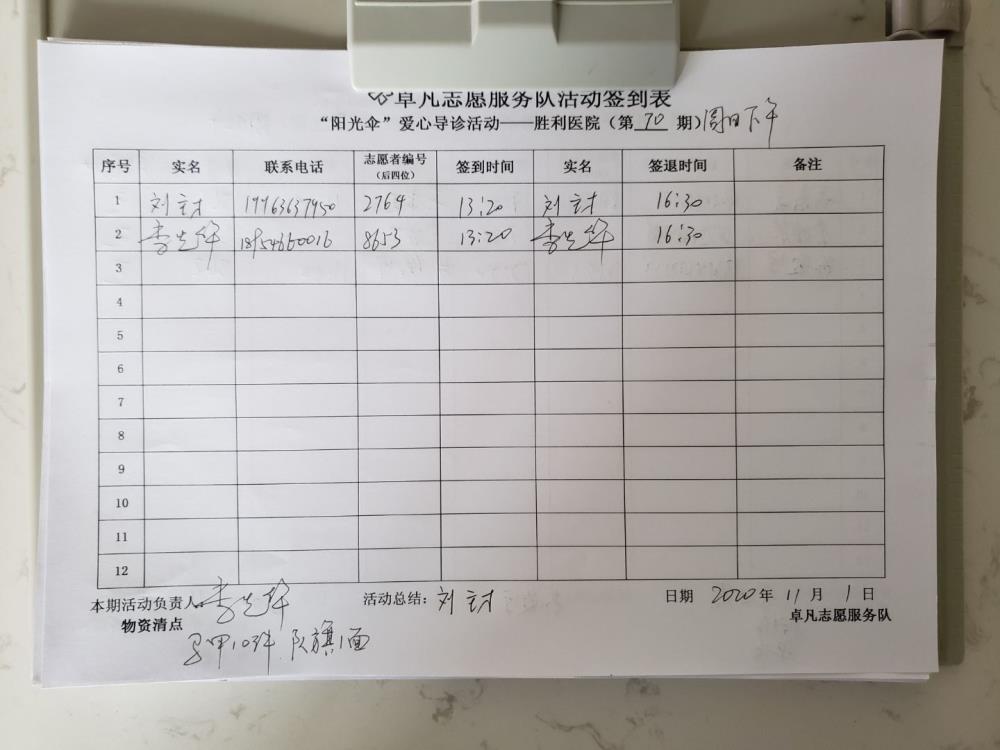 卓凡志愿服务队活动签到表
“阳光伞”爱心导诊活动——胜利医院（第 70 期）周日下午
序号 实名 联系电话 志愿者编号（后四位） 签到时间 实名 签退时间 备注
1 刘 2764 13:20 刘 16:30
2 李先华 18954660016 8653 13:20 李先华 16:30
3
4
5
6
7
8
9
10
11
12
本期活动负责人 李先华 活动总结：刘 日期 2020年 11月 1日
物资清点 卓凡志愿服务队
马甲10件 队旗1面